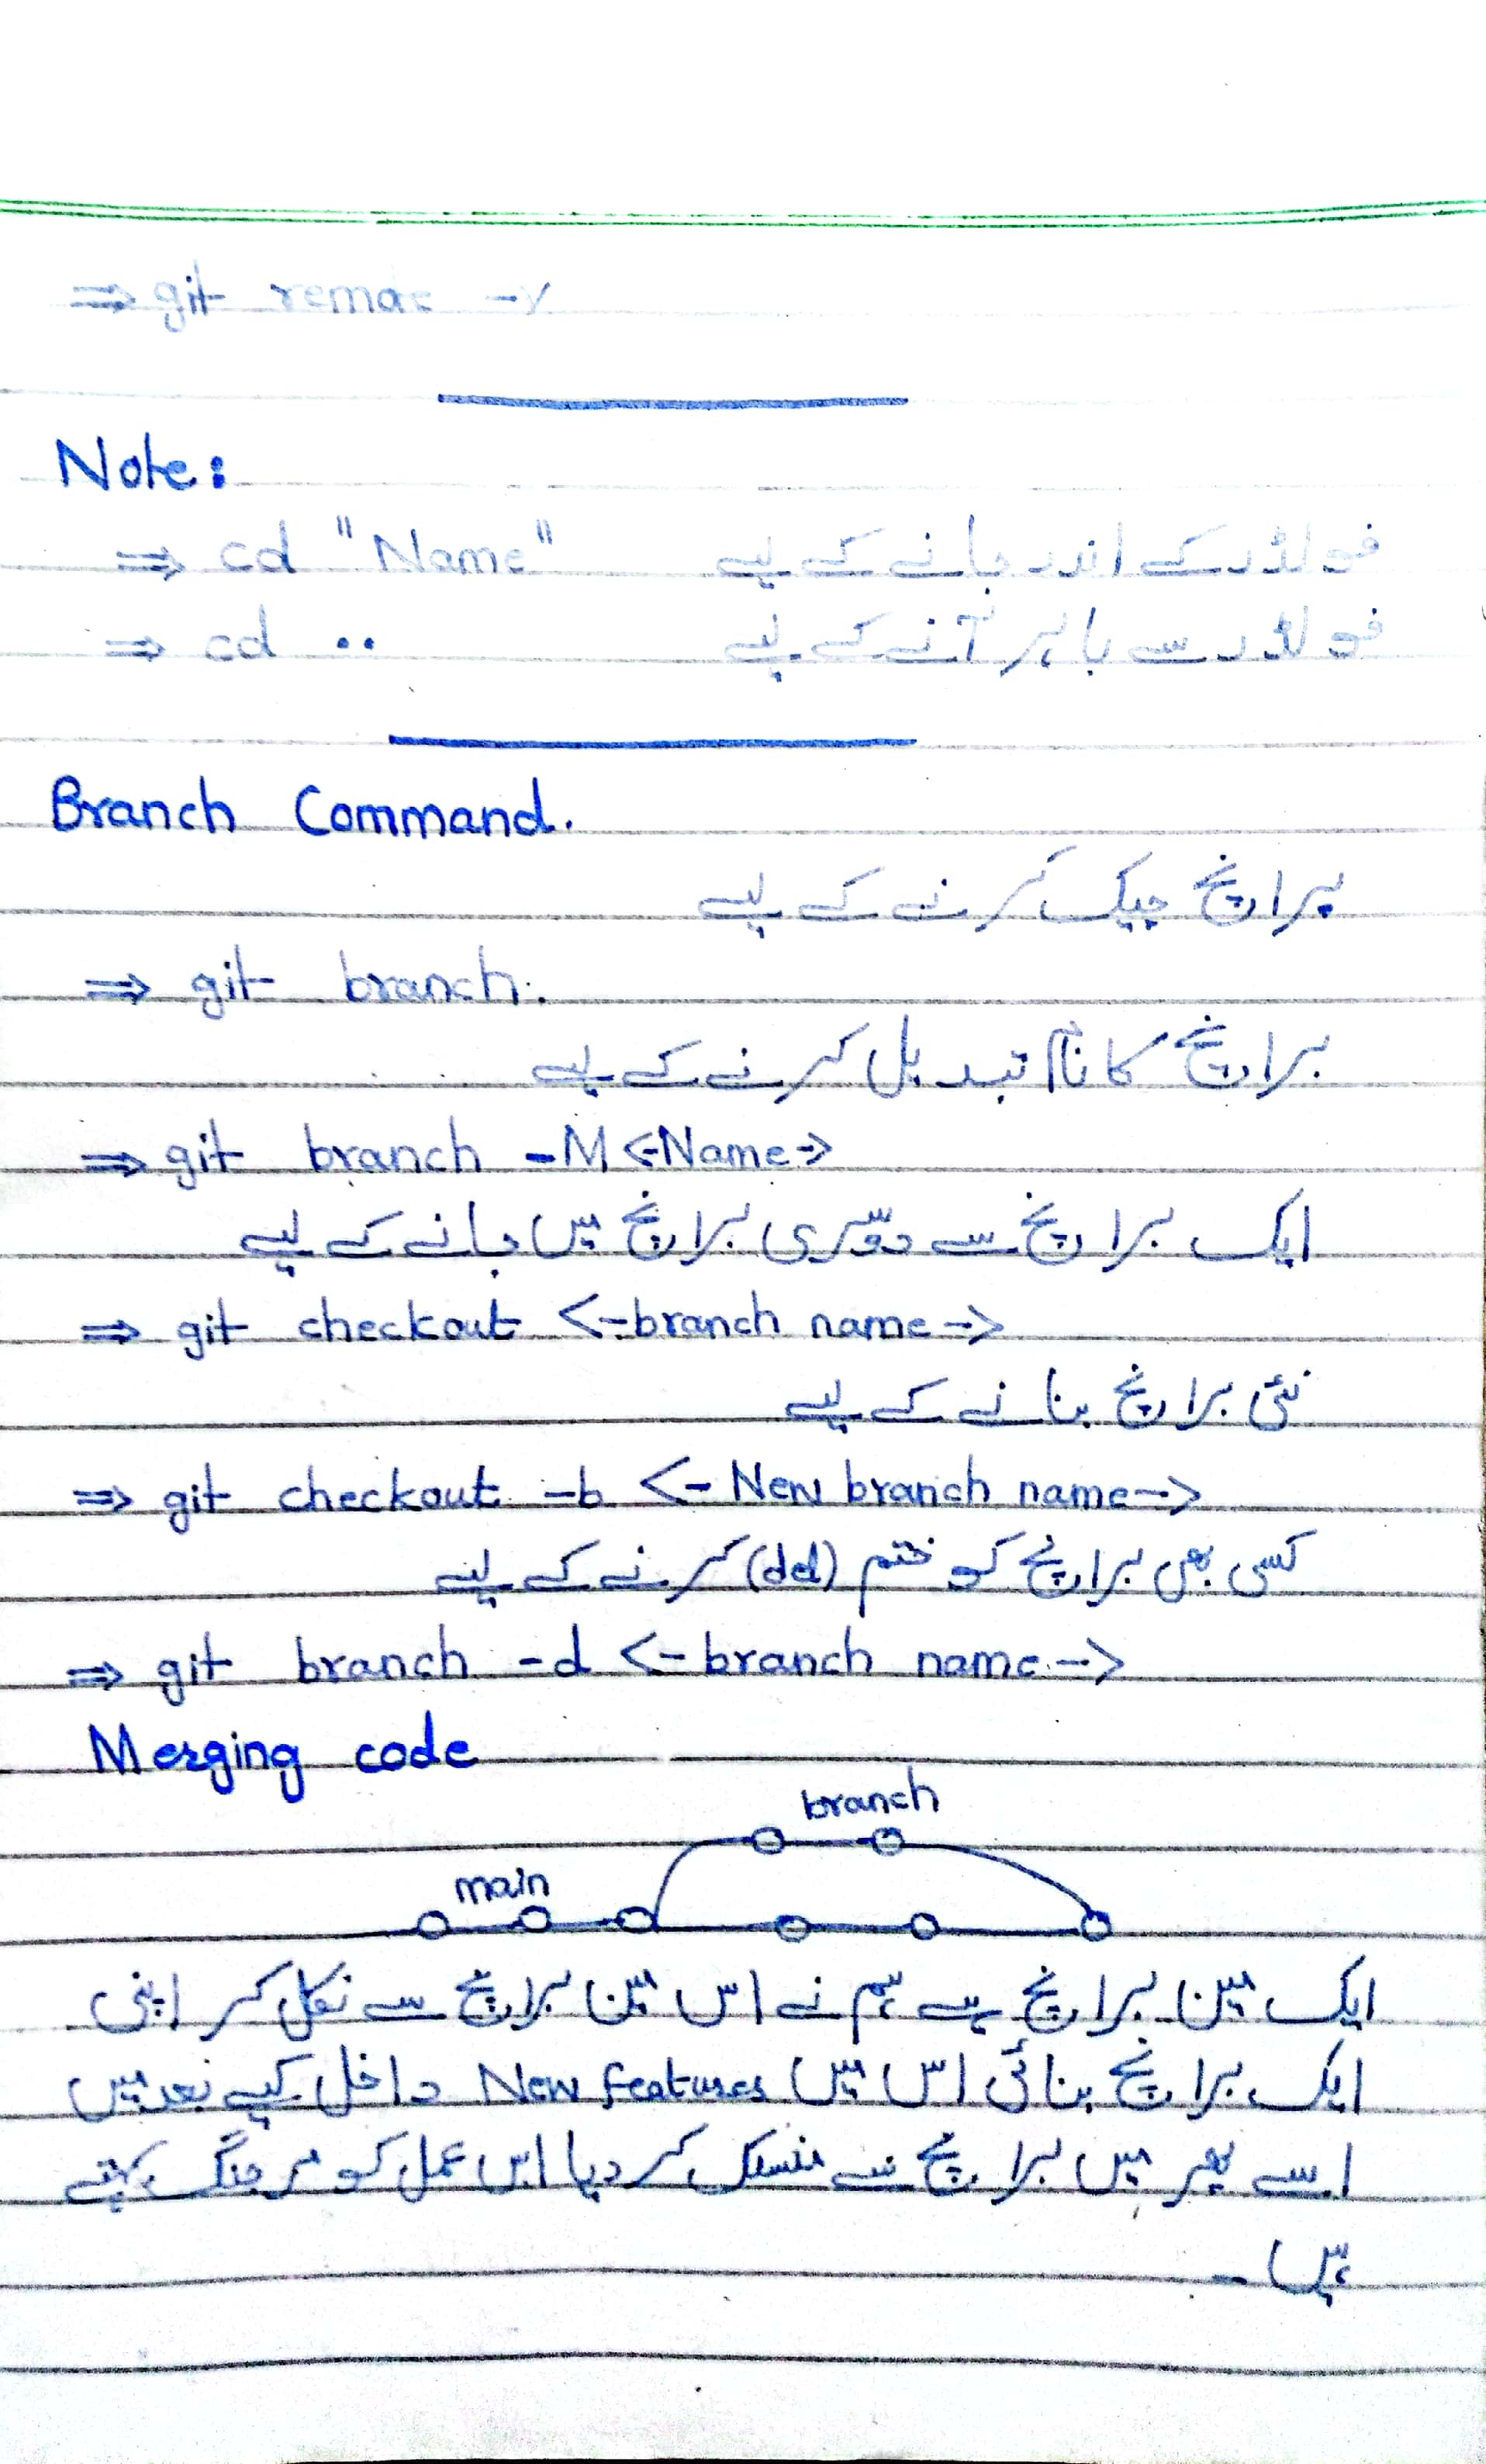 ⇒ git remote -v
Note:
⇒ cd "Name" فولڈر کے اندر جانے کے لیے
⇒ cd .. فولڈر سے باہر آنے کے لیے
Branch Command.
برانچ چیک کرنے کے لیے
⇒ git branch.
برانچ کا نام تبدیل کرنے کے لیے
⇒ git branch -M <-Name->
ایک برانچ سے دوسری برانچ میں جانے کے لیے
⇒ git checkout <-branch name->
نئی برانچ بنانے کے لیے
⇒ git checkout -b <- New branch name->
کسی بھی برانچ کو ختم (del) کرنے کے لیے
⇒ git branch -d <- branch name->
Merging code
branch
main
ایک مین برانچ ہے ہم نے اس مین برانچ سے نکل کر اپنی
ایک برانچ بنائی اس میں New features داخل کیے بعد میں
اسے پھر میں برانچ سے منسلک کر دیا اس عمل کو مرجنگ کہتے
ہیں۔